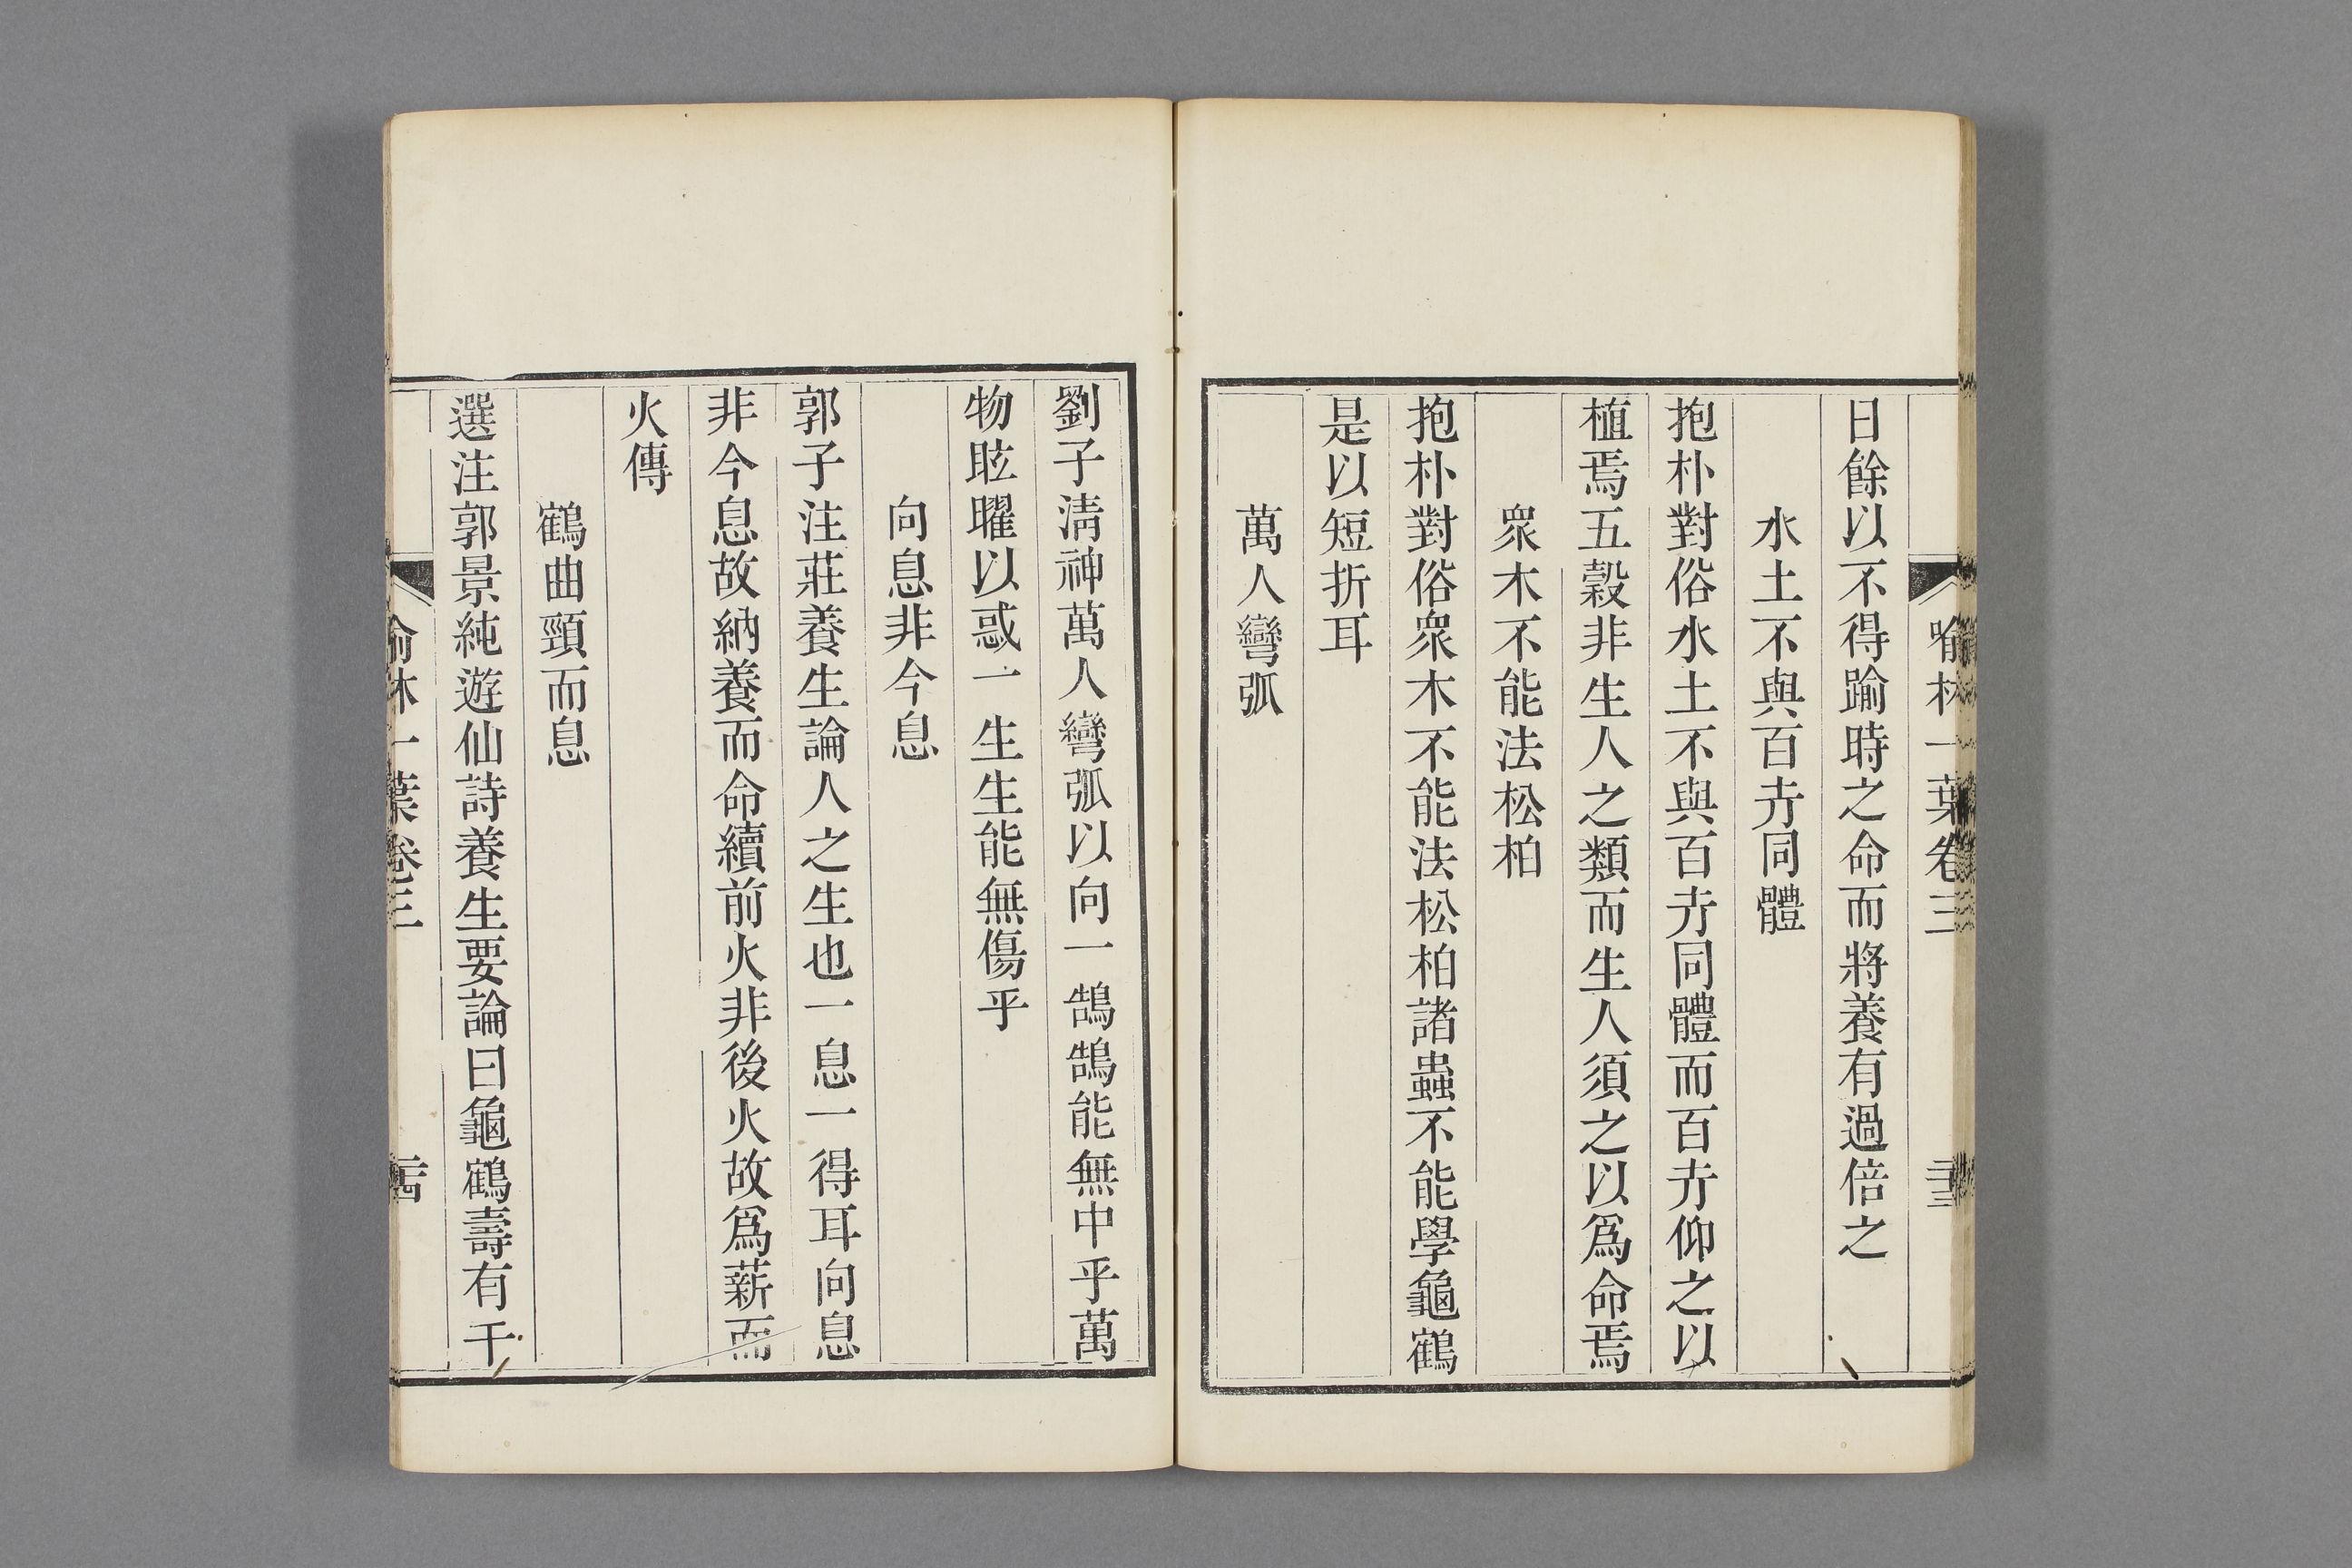 喻林一葉卷三
二十三
日餘以不得踰時之命而將養有過倍之
水土不與百卉同體
抱朴對俗水土不與百卉同體而百卉仰之以
植焉五穀非生人之類而生人須之以爲命焉
衆木不能法松柏
抱朴對俗衆木不能法松柏諸蟲不能學龜鶴
是以短折耳
萬人彎弧
劉子淸神萬人彎弧以向一鵠鵠能無中乎萬
物眩曜以惑一生生能無傷乎
向息非今息
郭子注莊養生論人之生也一息一得耳向息
非今息故納養而命續前火非後火故爲薪而
火傳
鶴曲頸而息
選注郭景純遊仙詩養生要論曰龜鶴壽有千
喻林一葉卷三
二十四